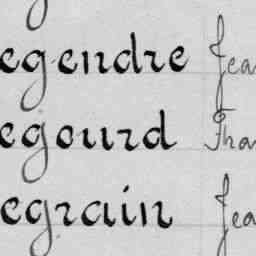 egendre Jea
egourd Tha
egrain Jea